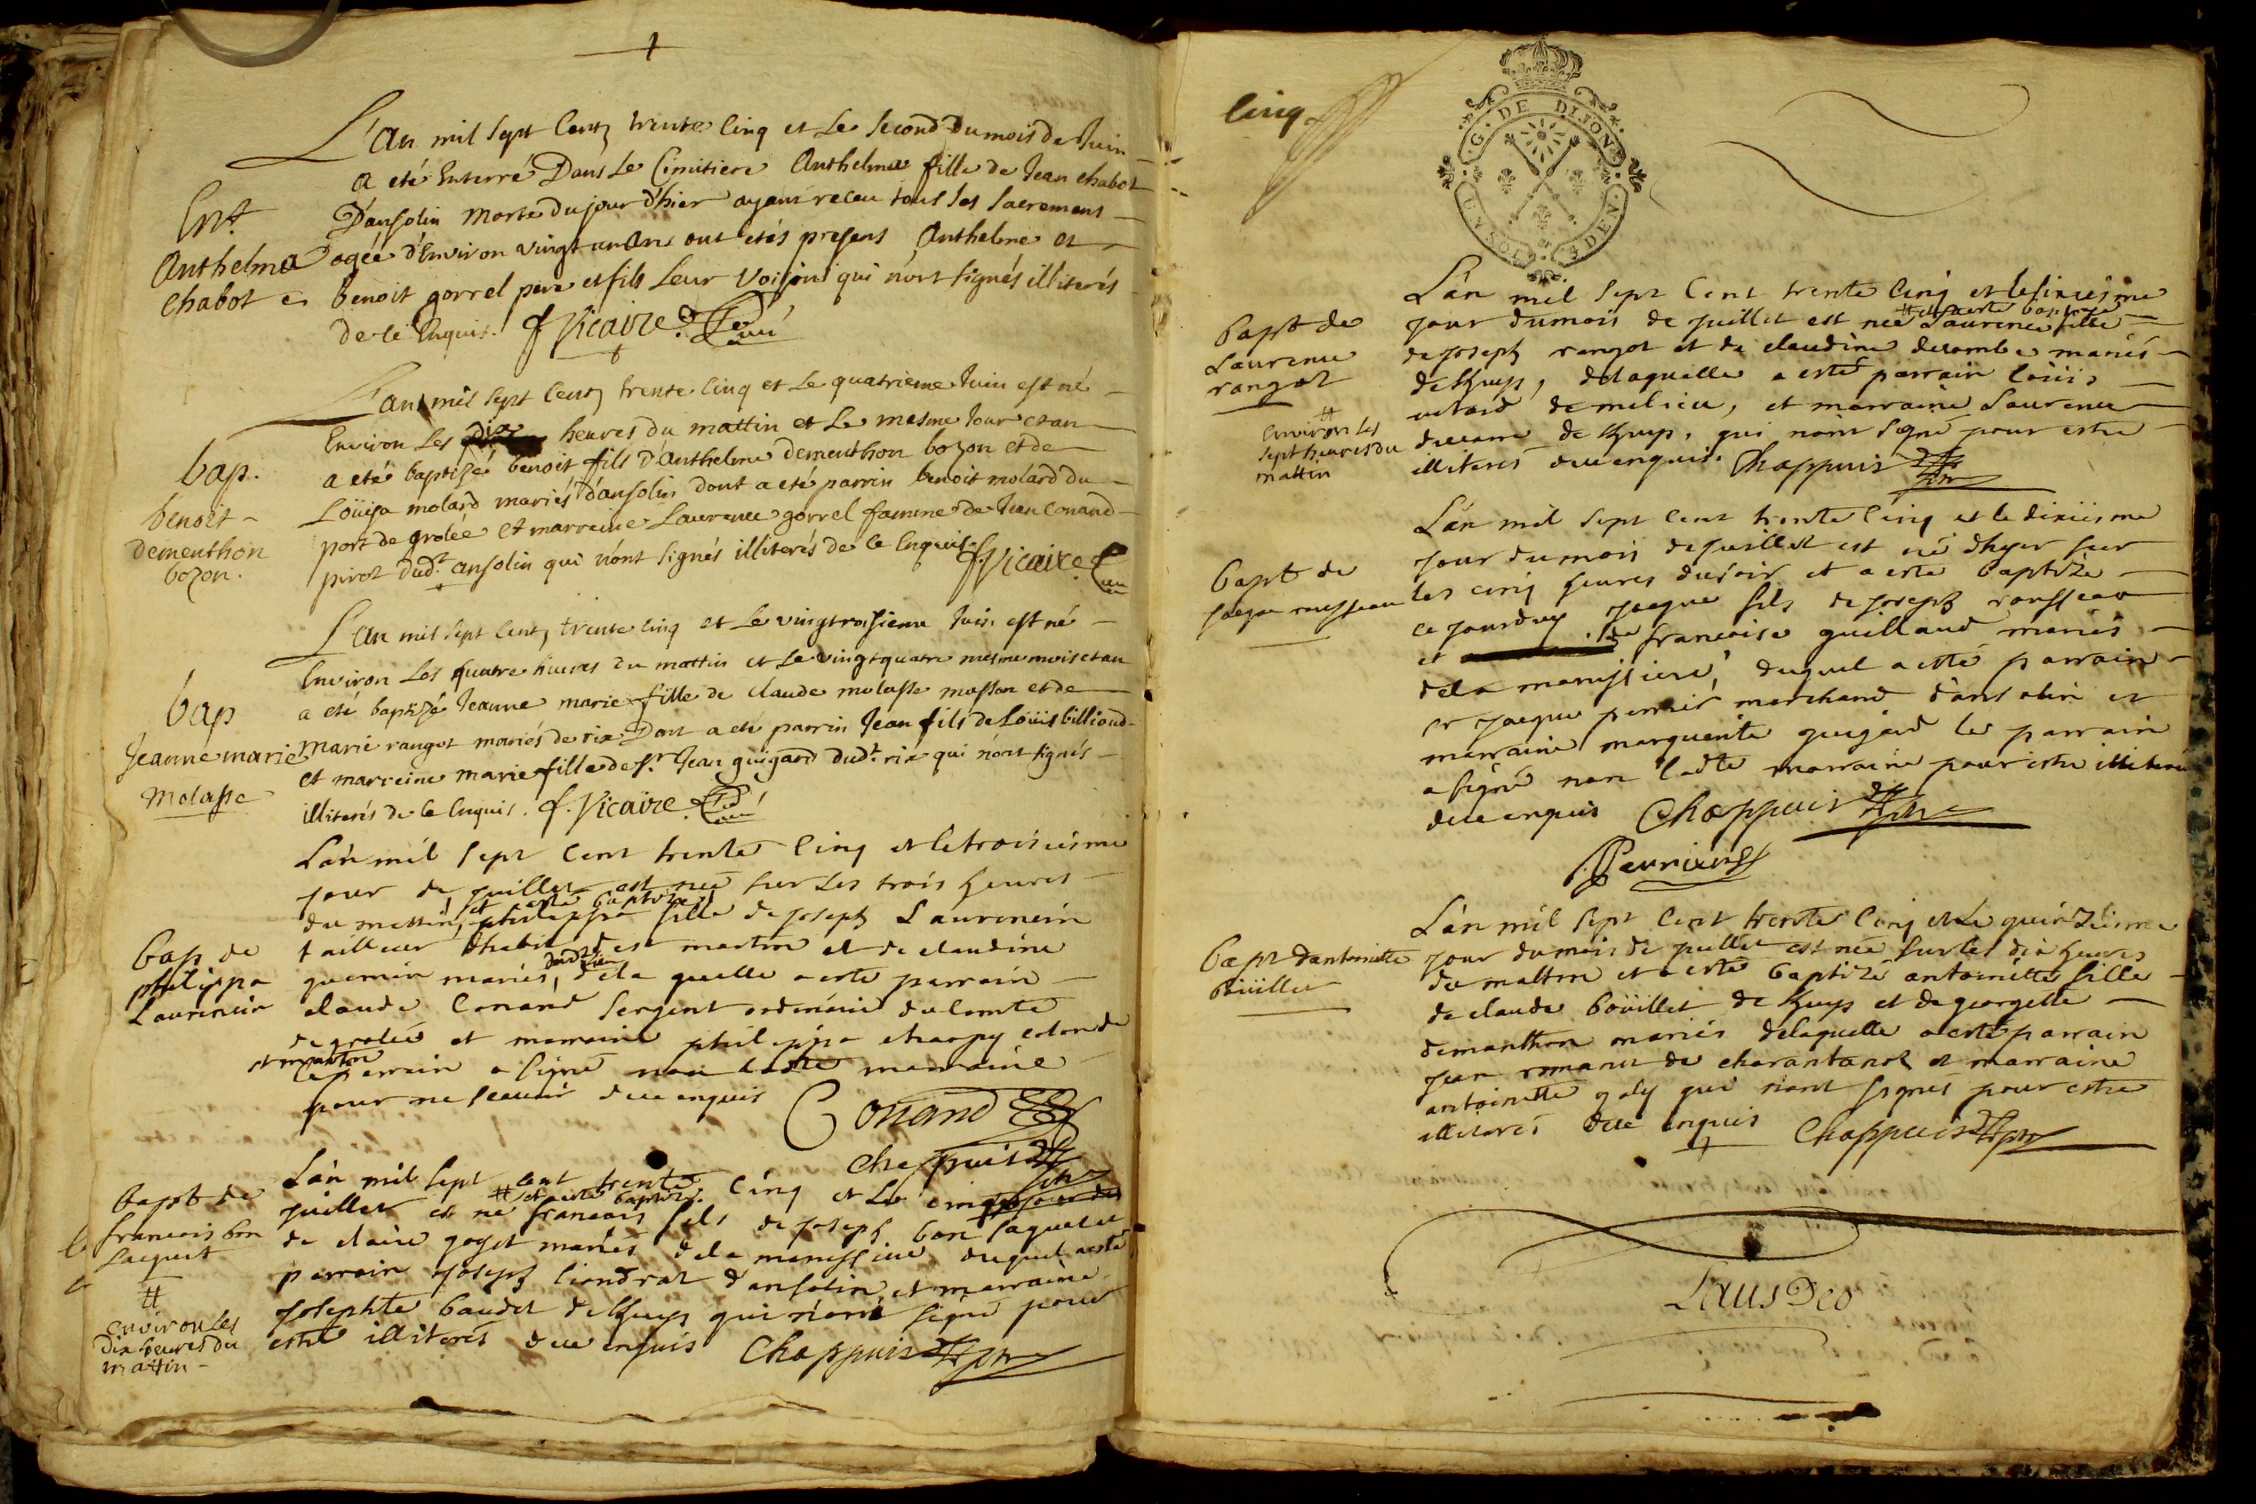 L'an mil sept Centz trente Cinq et Le second Du mois de Juin
a eté Enterré Dans Le Cimitiere Anthelma fille de Jean chabot
D'ansolin morte du jour d'hier ayant receu tous les sacremens
Ent.
Anthelma
chabot
agée d'Environ vingt un ans ont etés presens Anthelme et
benoit gorrel pere et fils Leur Voisins qui n'ont signés illiterés
de ce Enquis. f. Vicaire
L'an mil sept Centz trente Cinq et Le quatrieme Juin est né
Environ Les dix heures du mattin et Le mesme Jour et an
bap.
benoit
dementhon
bozon.
a eté baptizé benoit fils d'Anthelme dementhon bozon et de
Loüisa molard mariés d'ansolin dont a eté parrin benoit molard du
port de grolée et marraine Laurence gorrel famme de Jean Conand
pirot dud.t ansolin qui n'ont signés illiterés de ce Enquis f. Vicaire
L'an mil sept Centz trente Cinq et Le vingtroisieme Juin est né
Environ Les quatre heures du mattin et Le vingtquatre mesme mois et an
bap
Jeanne marie
Molasse
a eté baptizé Jeanne marie fille de claude molasse masson et de
Marie rangot mariés de rix Dont a ete parrin Jean fils de Loüis billioud
et marreine marie fille de s.r Jean guigard dud.t rix qui n'ont signés
illiterés de ce Enquis. f. Vicaire
L'an mil sept Cent trente Cinq et le troisiesme
jour de juillet est née sur Les trois heures
et a esté baptizée
du mattin, philippa fille de joseph Laurencin
bap de
philippa
Laurencin
tailleur d'habit de st martin et de claudine
guemin mariés, de la quelle a esté parrain
claude Conand sergent ordinaire du comte
de grolée et marraine philippa charpy
st martin
le parrain a signé non ladte marraine
pour ne scavoir de ce enquis Conand
Chappuis
bapt de
francois bon
Jacquet
L'an mil sept cent trente Cinq et Le cinq
juillet est né francois fils de joseph bon Jaquet et
# et a esté baptizé
de claire goyet mariés de la manissiere duquel a esté
parrain joseph Liondrat d'ansolin, et marraine
#
environ Les
dix heures du
mattin
josephte baudet de Huys qui n'ont signé pour
estre illiterés de ce enquis Chappuis
Cinq
G. DE DIJON
UN SOL 4 DEN.
L'an mil sept Cent trente Cinq et le sixiesme
bapt de
Laurence
rangot
jour du mois de juillet est née Laurence fille
# et a esté baptizée
de joseph rangot et de claudine decombe mariés
de Huys, de laquelle a esté parrain Loüis
#
environ les
sept heures du
mattin
de milieu, et marraine Laurence
de Huys, qui n'ont signé pour estre
illiterés de ce enquis. Chappuis
L'an mil sept Cent trente Cinq et le dixiesme
jour du mois de juillet est né d'hyer sur
bapt de
Jacque rousseau
les cinq heures du soir et a esté baptizé
ce jourduy jacque fils de joseph rousseau
et de francoise guilland mariés
de la manissiere, duquel a esté parrain
sr jacque pernix marchand d'ansolin et
marraine marguerite guigard le parrain
a signé non ladte marraine pour estre illiterée
de ce enquis Chappuis
Pernixe
L'an mil sept Cent trente Cinq et Le quinziesme
bapt d'antoinette
boüillet
jour du mois de juillet est née sur les dix heures
du mattin et a esté baptizé antoinette fille
de claude boüillet de Huys et de georgette
demanthon mariés de laquelle a esté parrain
jean romanet de charantonot et marraine
antoinette galy qui n'ont signés pour estre
illiterés de ce enquis Chappuis
Laus Deo